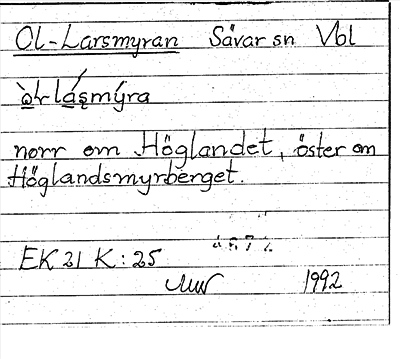 Ol-Larsmyran Sävar sn Vbl
norr om Höglandet, öster om
Höglandsmyrberget.
EK 21 K: 25
1992